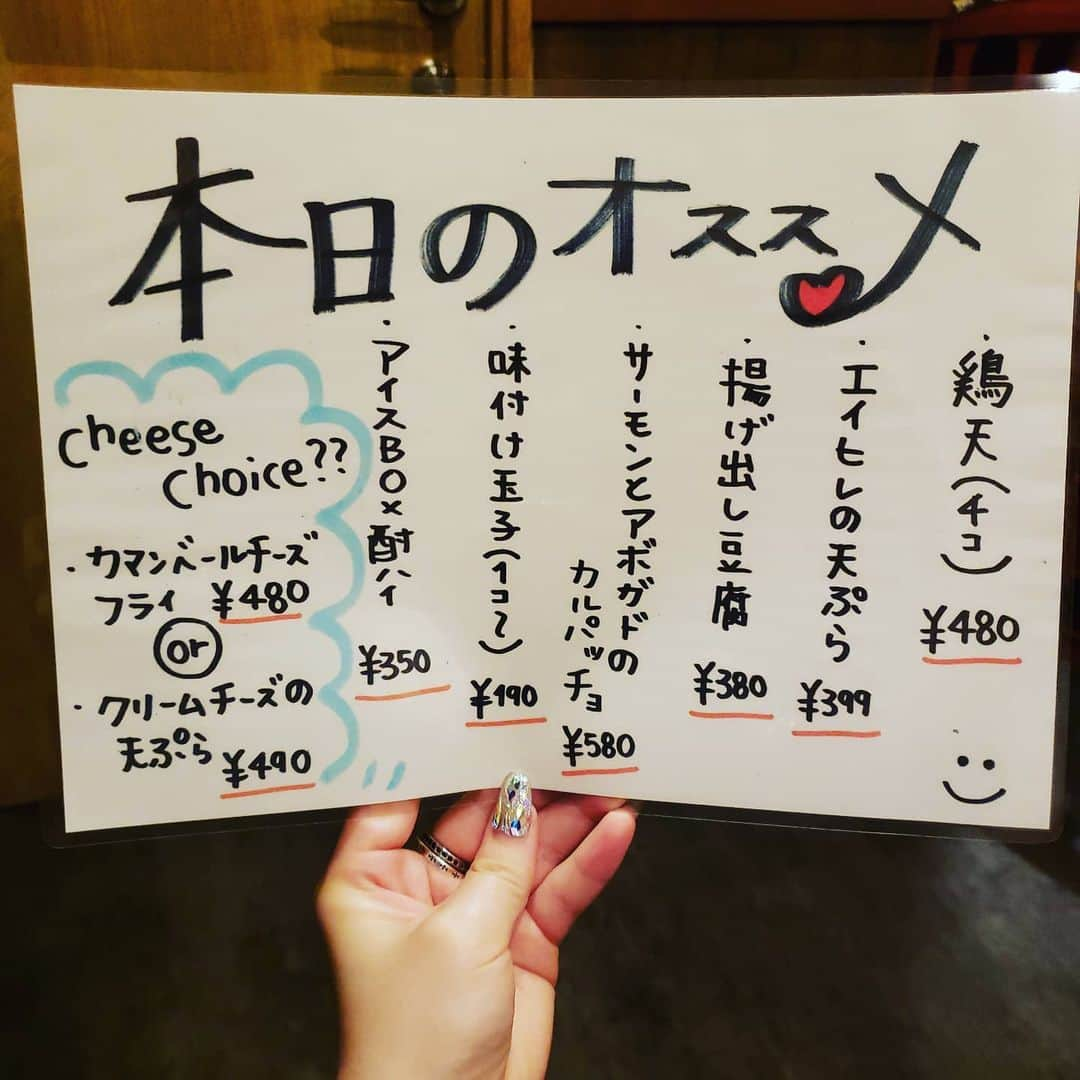 本日のオススメ
・鶏天(4コ)
¥480
・エイヒレの天ぷら
¥399
・揚げ出し豆腐
¥380
・サーモンとアボガドの
カルパッチョ
¥580
・味付け玉子(1コ~)
¥190
・アイスBOX酎ハイ
¥350
Cheese
Choice??
・カマンベールチーズ
フライ ¥480
or
・クリームチーズの
天ぷら ¥490